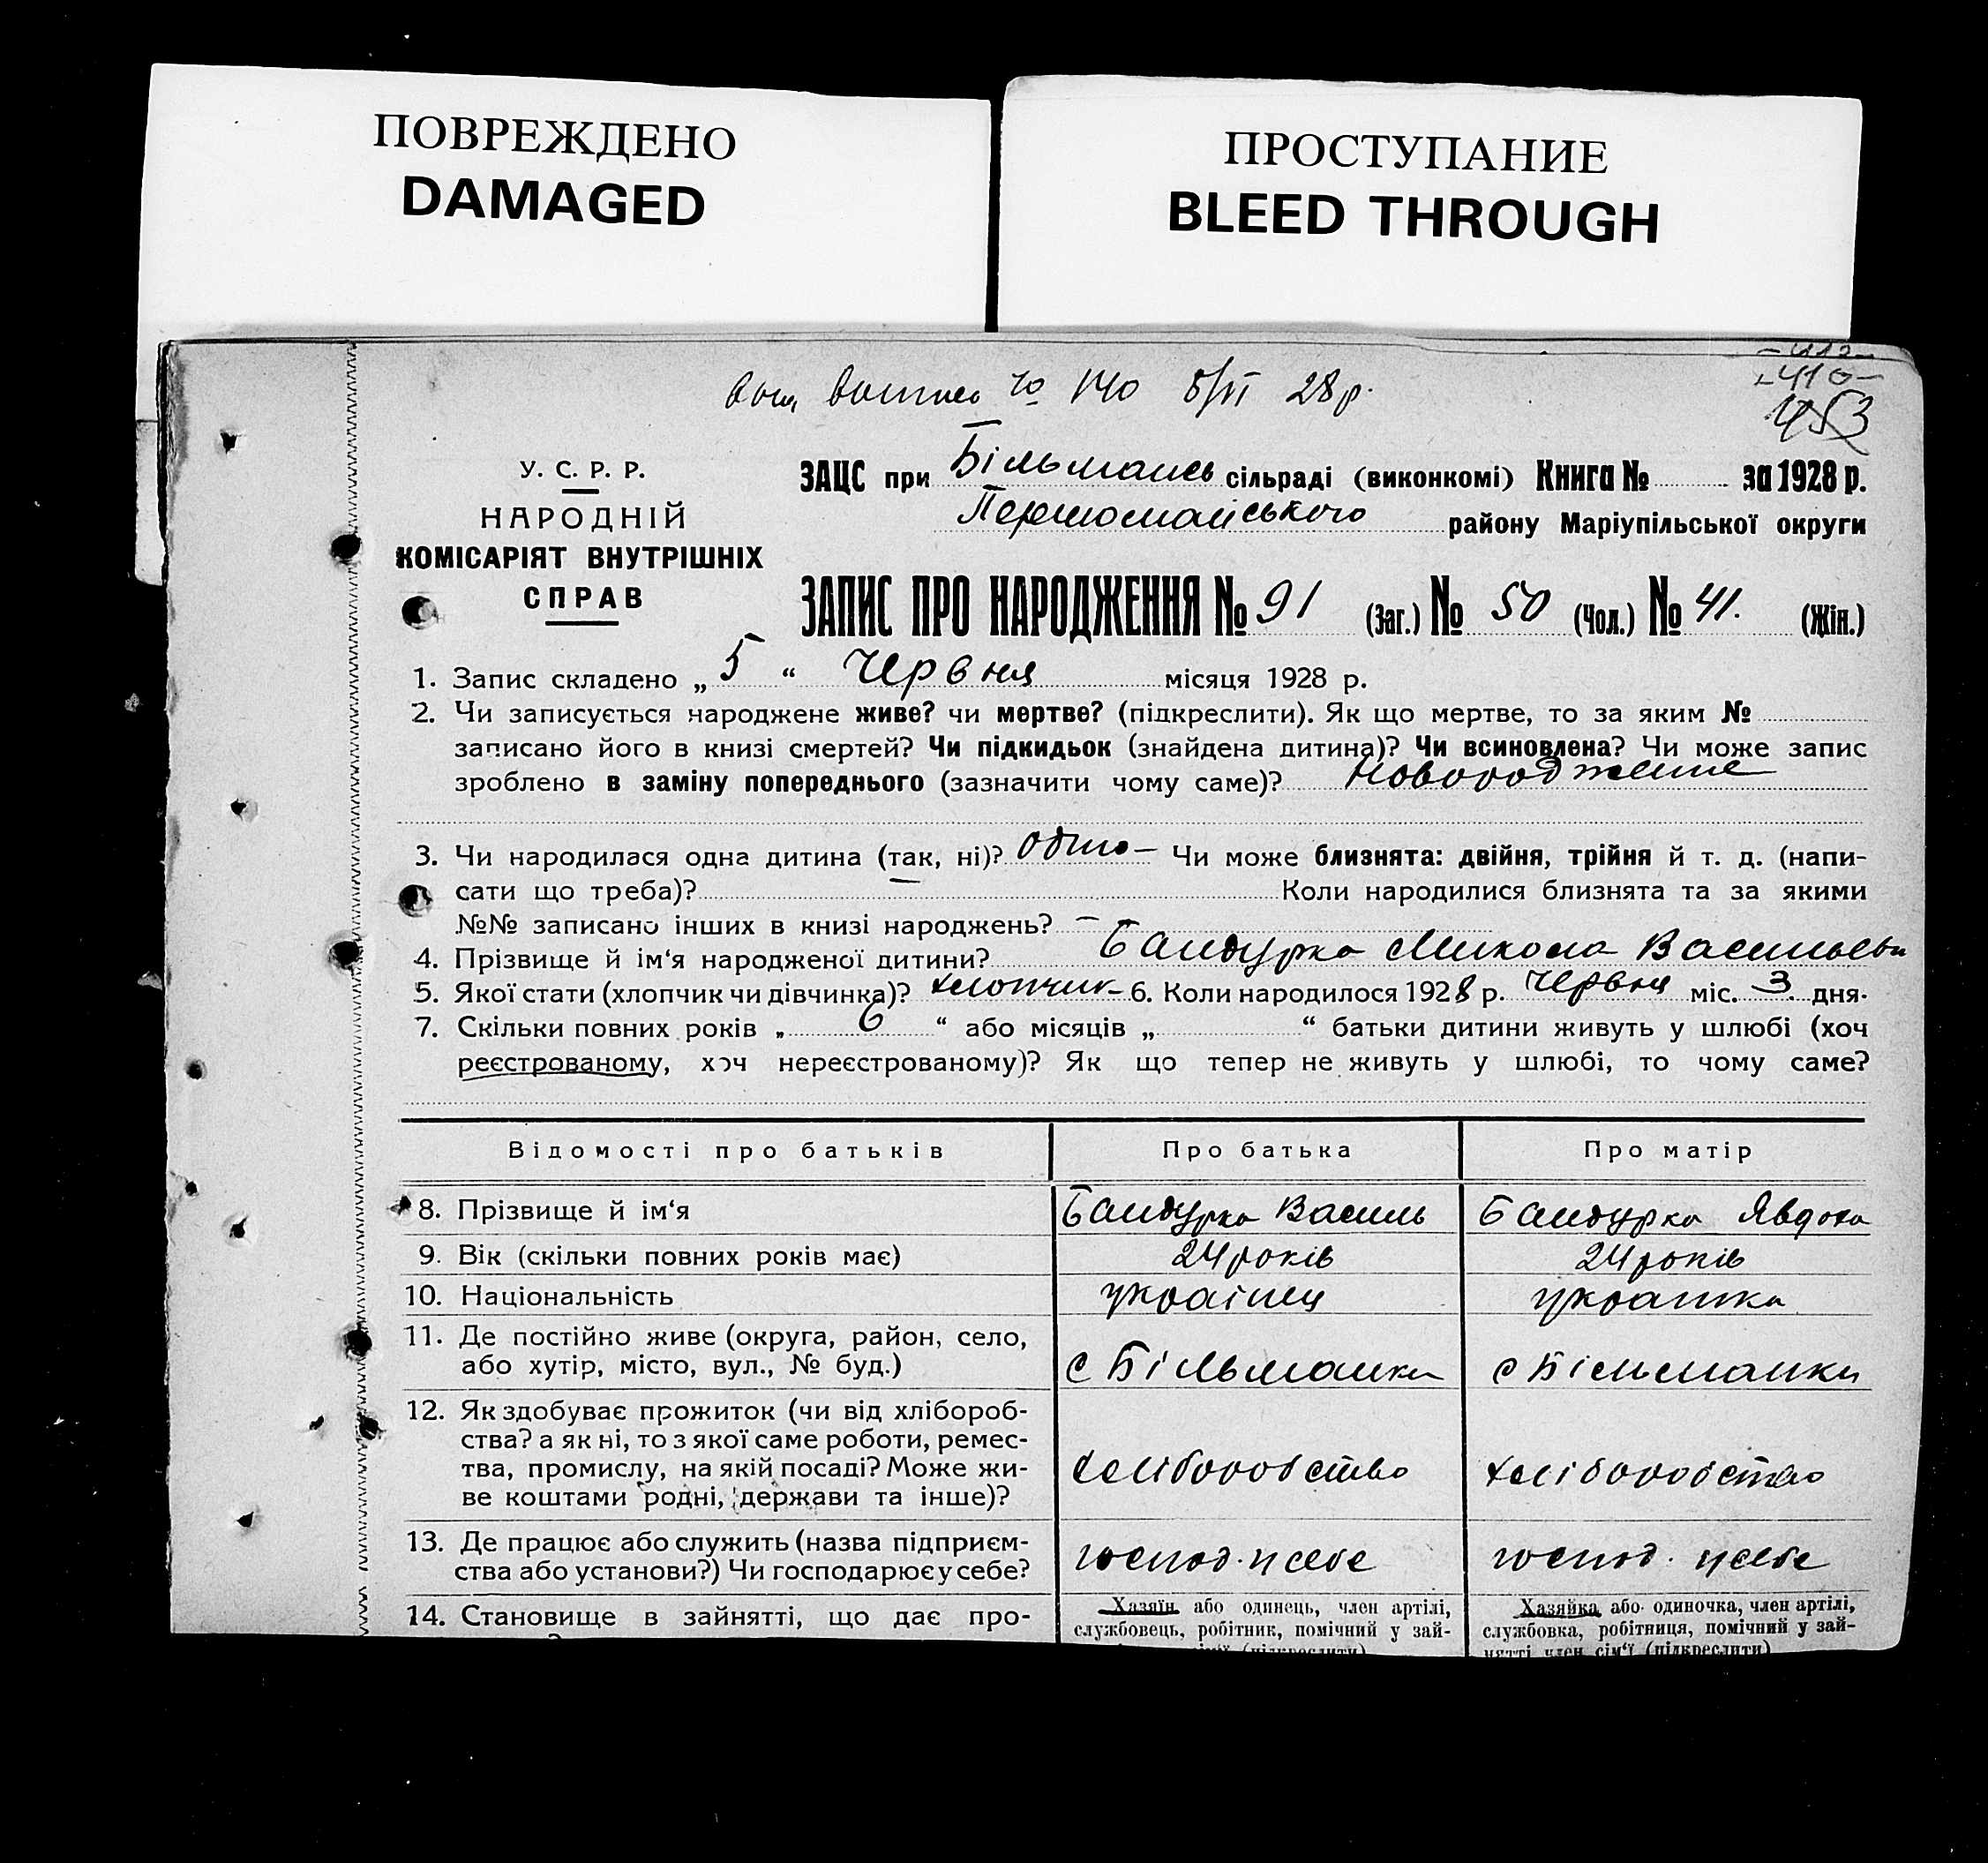 ПОВРЕЖДЕНО
DAMAGED
ПРОСТУПАНИЕ
BLEED THROUGH
-410-
453
№ 140 5/VI 28 р.
У. С. Р. Р.
НАРОДНІЙ
КОМІСАРІЯТ ВНУТРІШНІХ
СПРАВ
ЗАЦС при Більмансь сільраді (виконкомі) Книга № за 1928 р.
Першомайського району Маріупільської округи
ЗАПИС ПРО НАРОДЖЕННЯ № 91 (Заг.) № 50 (Чол.) № 41. (Жін.)
1. Запис складено „ 5 “ Червня місяця 1928 р.
2. Чи записується народжене живе? чи мертве? (підкреслити). Як що мертве, то за яким №
записано його в книзі смертей? Чи підкидьок (знайдена дитина)? Чи всиновлена? Чи може запис
зроблено в заміну попереднього (зазначити чому саме)? Новорождение
3. Чи народилася одна дитина (так, ні)? одно — Чи може близнята: двійня, трійня й т. д. (напи-
сати що треба)? — Коли народилися близнята та за якими
№№ записано інших в книзі народжень? —
4. Прізвище й ім‘я народженої дитини? Бандурка Микола Васильеви
5. Якої стати (хлопчик чи дівчинка)? хлопчик 6. Коли народилося 1928 р. Червня міс. 3 дня.
7. Скільки повних років „ 6 “ або місяців „ “ батьки дитини живуть у шлюбі (хоч
реєстрованому, хоч нереєстрованому)? Як що тепер не живуть у шлюбі, то чому саме?
Відомості про батьків Про батька Про матір
8. Прізвище й ім‘я Бандурка Василь Бандурка Явдоха
9. Вік (скільки повних років має) 24 років 24 років
10. Національність українец украинка
11. Де постійно живе (округа, район, село,
або хутір, місто, вул., № буд.) с Більманки с Більманки
12. Як здобуває прожиток (чи від хлібороб-
ства? а як ні, то з якої саме роботи, ремес-
тва, промислу, на якій посаді? Може жи-
ве коштами родні, держави та інше)? хліборобство хліборобство
13. Де працює або служить (назва підприєм-
ства або установи?) Чи господарює у себе? господ. у себе господ. у себе
14. Становище в зайнятті, що дає про-
Хазяїн або одинець, член артілі,
службовець, робітник, помічний у зай-
Хазяйка або одиночка, член артілі,
службовка, робітниця, помічний у зай-
нятті член сім‘ї (підкреслити)